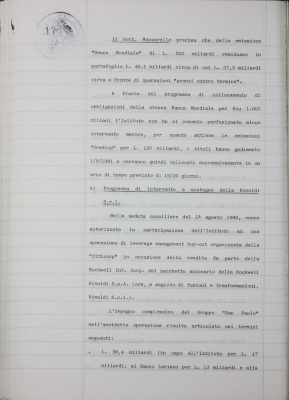 Il Dott. Maccarello precisa che della emissione
"Banca Mondiale" di L. 500 miliardi residuano in
portafoglio L. 46,1 miliardi circa di cui L. 27,5 miliardi
circa a fronte di operazioni "pronti contro termine".
A fronte del programma di collocamento di
obbligazioni della stessa Banca Mondiale per Ecu 1.000
milioni l'Istituto non ha al momento perfezionato alcun
intervento mentre, per quanto attiene le emissioni
"Crediop" per L. 120 miliardi, i titoli hanno godimento
1/9/1991 e verranno quindi collocati decrescentemente in un
arco di tempo previsto di 15/20 giorni.
Programma di intervento a sostegno della Rinaldi
S.r.l.
Nella seduta consiliare del 1° agosto 1988, venne
autorizzata la partecipazione dell'Istituto ad una
operazione di leverage management buy-out organizzata dalla
"Citicorp" in occasione della vendita da parte della
Rockwell Int. Corp. del pacchetto azionario della Rockwell
Rinaldi S.p.A. (ora, a seguito di fusioni e trasformazioni,
Rinaldi S.r.l.).
L'impegno complessivo del gruppo "San Paolo"
nell'anzidetta operazione risulta articolato nei termini
seguenti:
- L. 38,4 miliardi (in capo all'Istituto per L. 17
miliardi, al Banco Lariano per L. 13 miliardi e alla